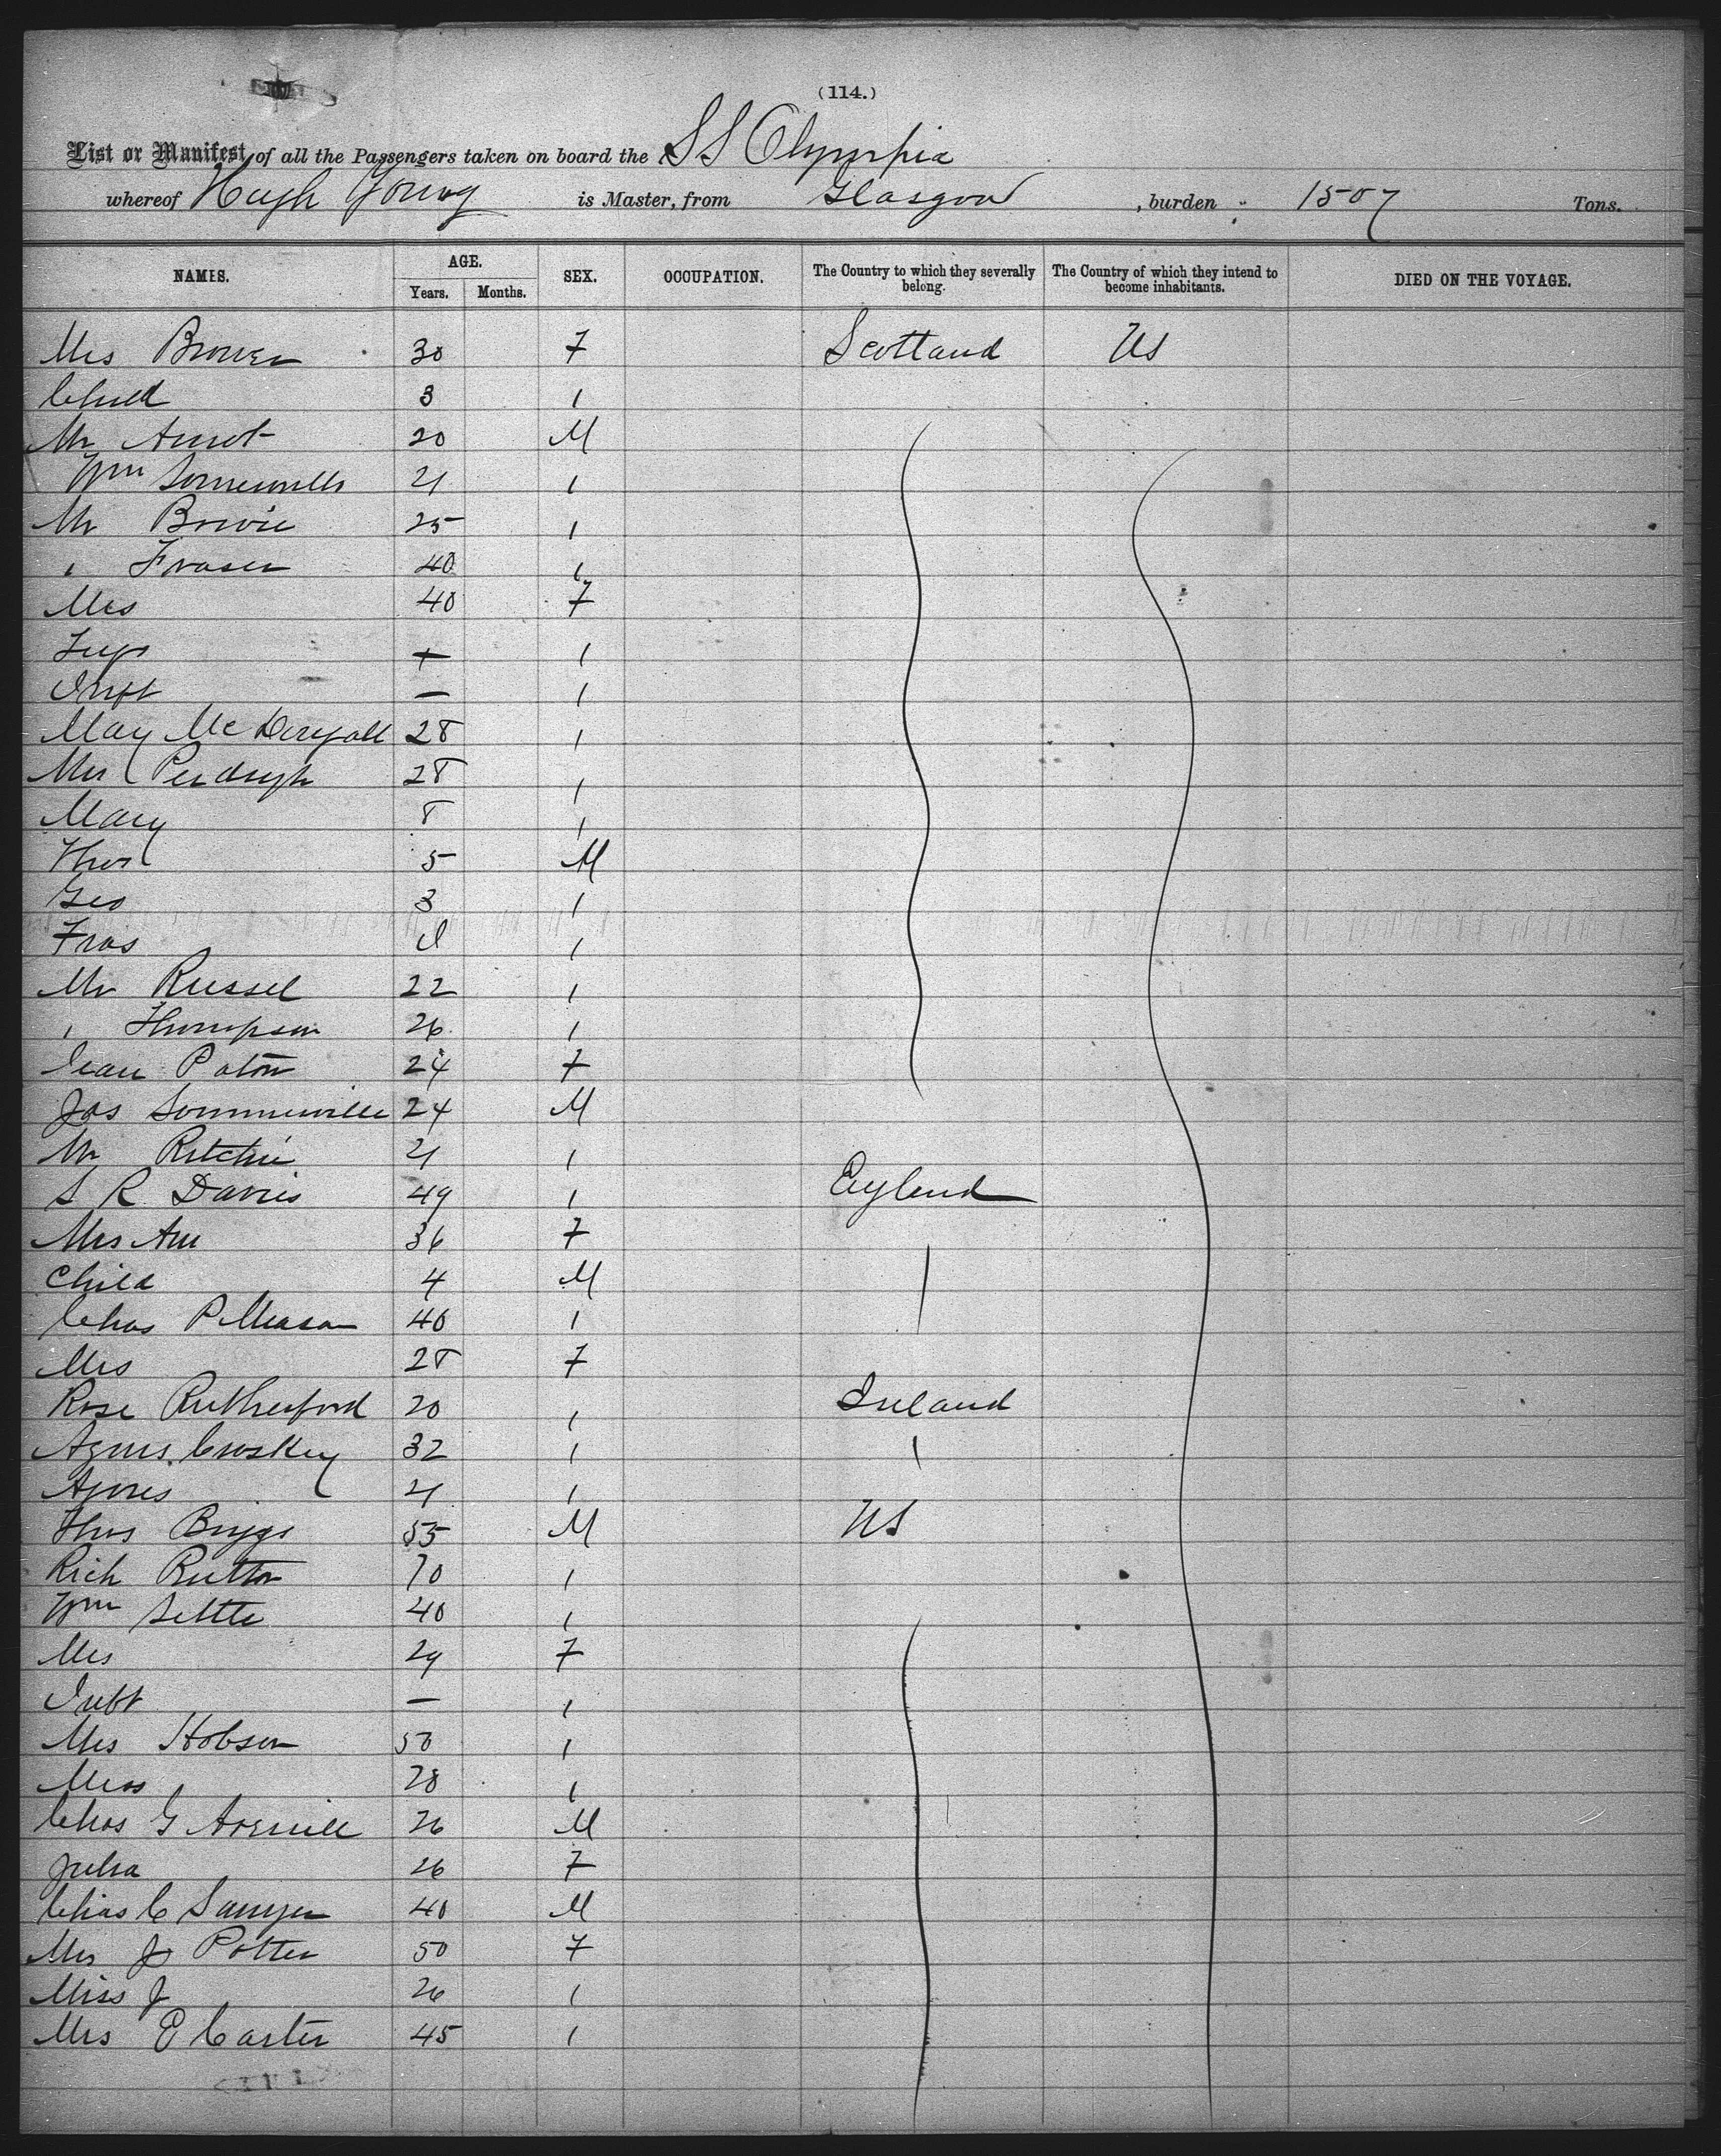 (114.)
List or Manifest of all the Passengers taken on board the SS Olympia
whereof Hugh Young is Master, from Glasgow, burden 1507 Tons.
NAMES. AGE. Years. Months. SEX. OCCUPATION. The Country to which they severally belong. The Country of which they intend to become inhabitants. DIED ON THE VOYAGE.
Mrs 30 F Scotland US
Child 3 "
Mr 20 M
Wm Somerville 21 "
Mr Bowie 25 "
" Fraser 40 "
Mrs 40 F
"
Inft — "
May McDougall 28 "
Mrs 28 "
Mary 8 "
Thos 5 M
Geo 3 "
Fras "
Mr Russel 22 "
" Thompson 26 "
Jean Paton 24 F
Jas Sommerville 24 M
Mr Ritchie 21 "
S R Davis 49 " England
Mrs 36 F "
Child 4 M
Chas P Meason 40 "
Mrs 28 F
Rose Rutherford 20 " Ireland
Agnes Croskey 32 " "
Agnes 21 "
Thos Briggs 55 M US
Rich Rutter 70 "
Wm Settle 40 "
Mrs 29 F
Inft — "
Mrs Hobson 50 "
Miss 28 "
Chas G Averill 26 M
Julia 26 F
Chas C Sawyer 40 M
Mrs J Potter 50 F
Miss J 26 "
Mrs E Carter 45 "